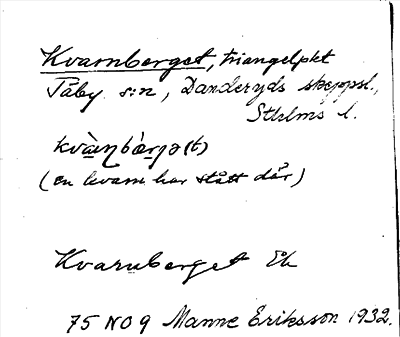 Kvarnberget, triangelpkt
Täby s:n, Danderyds skeppsl.,
Sthlms l.
kvà̱ṇbæ̀rjə(t)
(en kvarn har stått där)
Kvarnberget Ek
75 NO 9 Manne Eriksson 1932.